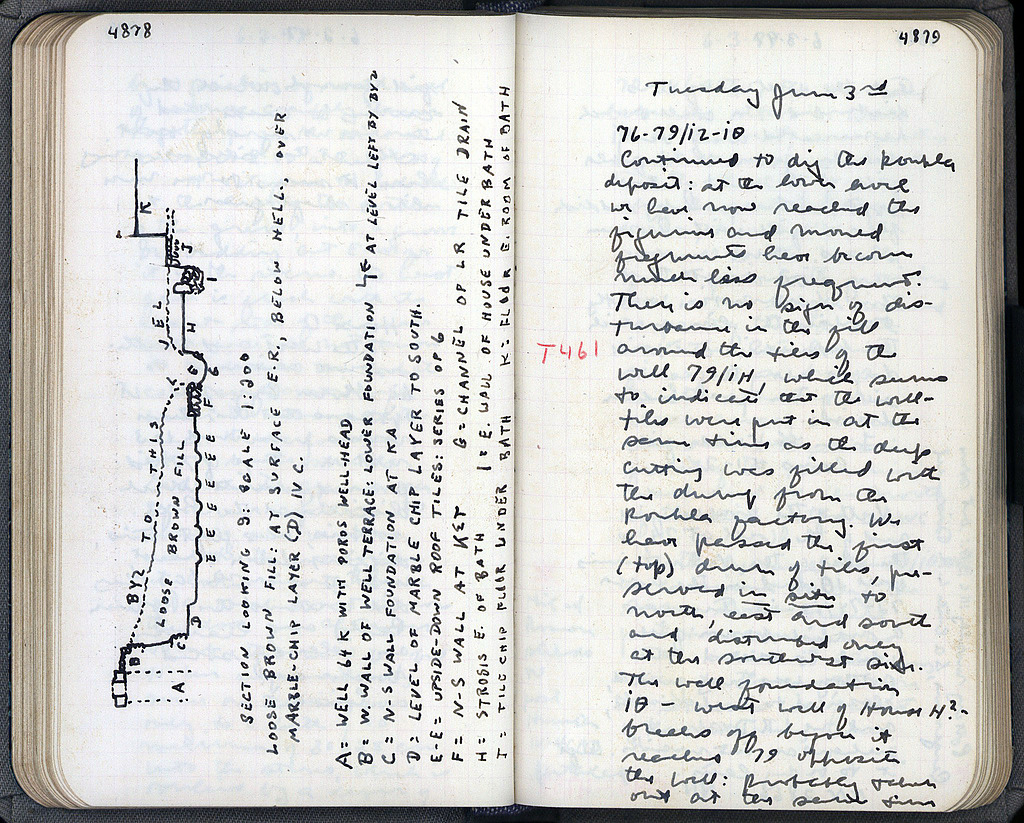 4878
K
J
I
JEL
H
G
F
E E E E E F
BY2 TO THIS
LOOSE BROWN FILL
D
C
B
A
SECTION LOOKING 9: SCALE 1:200
LOOSE BROWN FILL: AT SURFACE E.R., BELOW HELL., OVER
MARBLE-CHIP LAYER (D) IV C.
A = WELL 64 K WITH POROS WELL-HEAD
B = W. WALL OF WELL TERRACE: LOWER FOUNDATION AT LEVEL LEFT BY BY2
C = N-S WALL FOUNDATION AT KA
D = LEVEL OF MARBLE CHIP LAYER TO SOUTH.
E-E = UPSIDE-DOWN ROOF TILES: SERIES OF 6
F = N-S WALL AT KET G = CHANNEL OF LR TILE DRAIN
H = STROSIS E. OF BATH I = E. WALL OF HOUSE UNDER BATH
J = TILE CHIP FLOOR UNDER BATH K = FLOOR E. ROOM OF BATH
4879
Tuesday June 3rd
76-79/12-ΙΘ
Continued to dig the koukla
deposit: at the lower level
we have now reached the
figurines and mould
fragments have become
much less frequent.
There is no sign of dis-
turbance in the fill
T461
around the tiles of the
well 79/ΙΗ, which seems
to indicate that the well-
tiles were put in at the
same time as the deep
cutting was filled with
the dump from the
koukla factory. We
have passed the first
(top) drum of tiles, pre-
served in situ to
north, east and south
and disturbed only
at the southwest side.
The wall foundation
ΙΘ – west wall of House H? –
breaks off before it
reaches 79 opposite
the well: probably taken
out at the same time